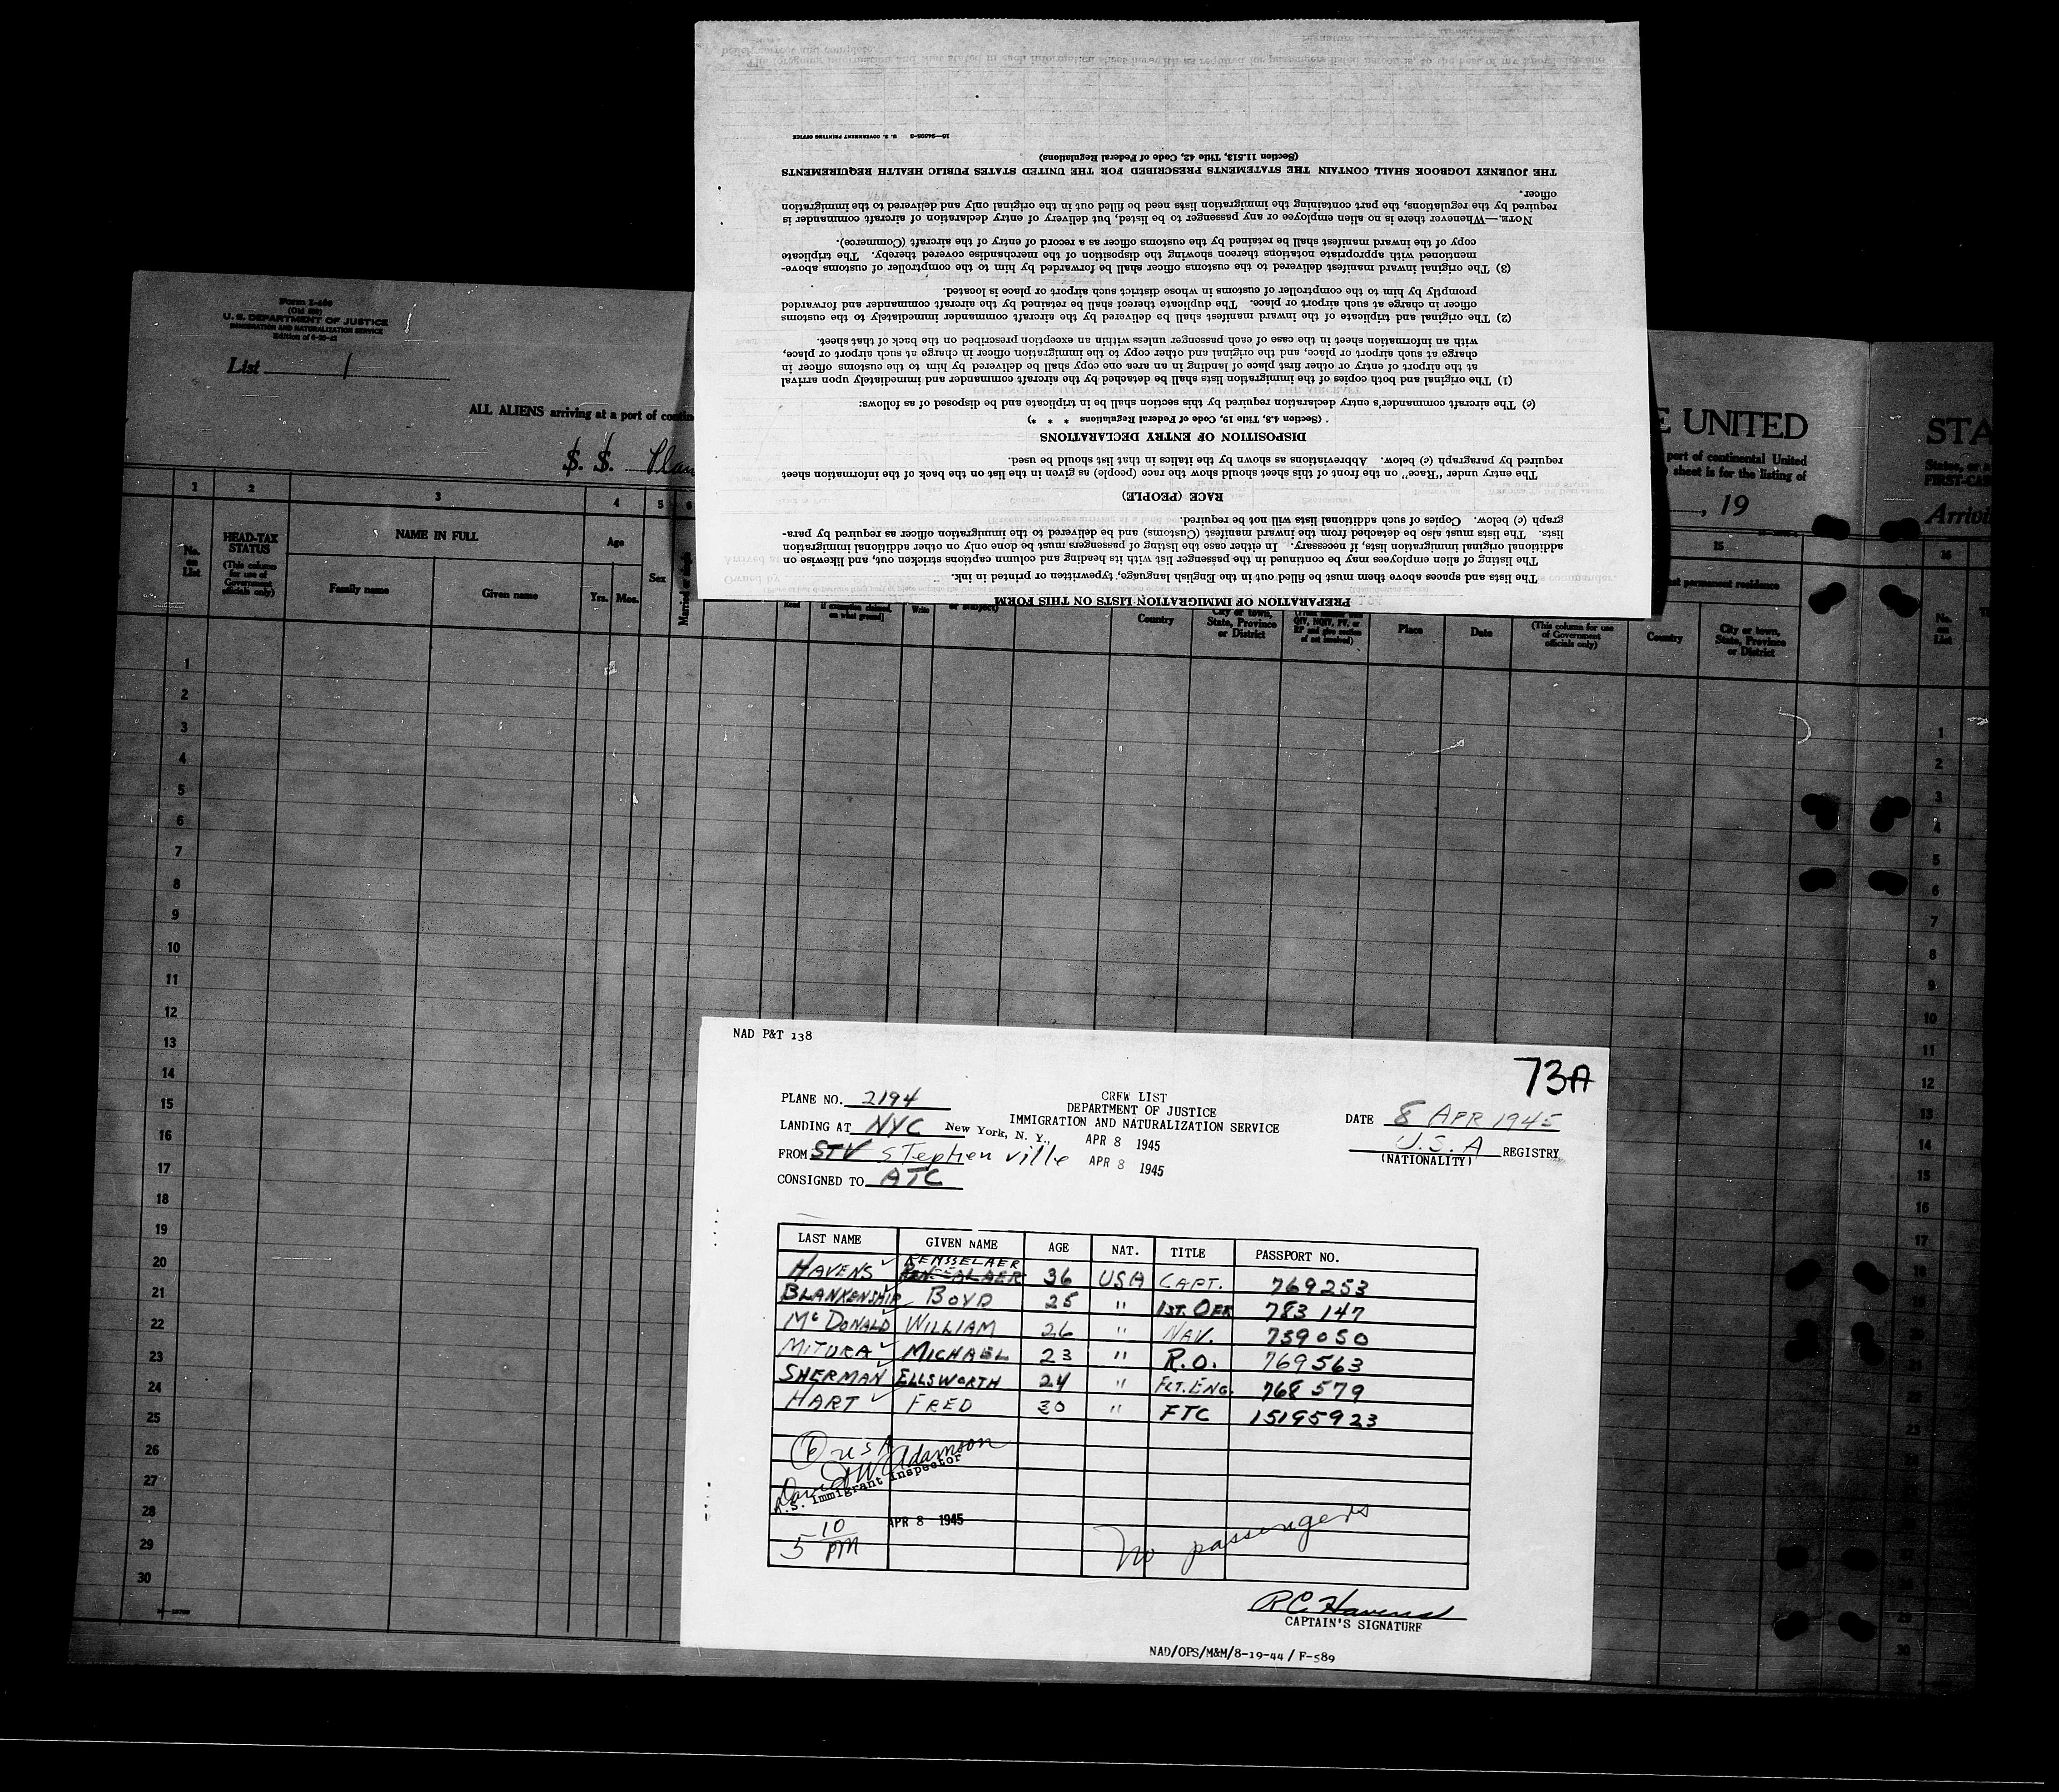 belief, correct and complete.
Form I-466
(Old 500)
U. S. DEPARTMENT OF JUSTICE
IMMIGRATION AND NATURALIZATION SERVICE
List 1
ALL ALIENS arriving at a port of contin
S. S. Plan
1 2 3 4 5
No. on List
HEAD-TAX STATUS
(This column for use of Government officials only)
NAME IN FULL
Family name
Given name
Age
Yrs. Mos.
Sex
Married or single
PREPARATION OF IMMIGRATION LISTS ON THIS FORM
The lists and spaces above them must be filled out in the English language, typewritten or printed in ink.
The listing of alien employees may be continued in the passenger list with its heading and column captions stricken out, and likewise on
additional original immigration lists, if necessary. In either case the listing of passengers must be done only on other additional immigration
lists. The lists must also be detached from the inward manifest (Customs) and be delivered to the immigration officer as required by para-
graph (c) below. Copies of such additional lists will not be required.
RACE (PEOPLE)
The entry under "Race" on the front of this sheet should show the race (people) as given in the list on the back of the information sheet
required by paragraph (c) below. Abbreviations as shown by the italics in that list should be used.
DISPOSITION OF ENTRY DECLARATIONS
(Section 4.8, Title 19, Code of Federal Regulations * * *)
(c) The aircraft commander's entry declaration required by this section shall be in triplicate and be disposed of as follows:
(1) The original and both copies of the immigration lists shall be detached by the aircraft commander and immediately upon arrival
at the airport of entry or other first place of landing in an area one copy shall be delivered by him to the customs officer in
charge at such airport or place, and the original and other copy to the immigration officer in charge at such airport or place,
with an information sheet in the case of each passenger unless within an exception prescribed on the back of that sheet.
(2) The original and triplicate of the inward manifest shall be delivered by the aircraft commander immediately to the customs
officer in charge at such airport or place. The duplicate thereof shall be retained by the aircraft commander and forwarded
promptly by him to the comptroller of customs in whose district such airport or place is located.
(3) The original inward manifest delivered to the customs officer shall be forwarded by him to the comptroller of customs above-
mentioned with appropriate notations thereon showing the disposition of the merchandise covered thereby. The triplicate
copy of the inward manifest shall be retained by the customs officer as a record of entry of the aircraft (Commerce).
NOTE.—Whenever there is no alien employee or any passenger to be listed, but delivery of entry declaration of aircraft commander is
required by the regulations, the part containing the immigration lists need be filled out in the original only and delivered to the immigration
officer.
THE JOURNEY LOGBOOK SHALL CONTAIN THE STATEMENTS PRESCRIBED FOR THE UNITED STATES PUBLIC HEALTH REQUIREMENTS
(Section 11.513, Title 42, Code of Federal Regulations)
U. S. GOVERNMENT PRINTING OFFICE
E UNITED
port of continental United
sheet is for the listing of
, 19
15
permanent residence
Country
City or town, State, Province or District
Place
Date
(This column for use of Government officials only)
Country
City or town, State, Province or District
STA
FIRST-CA
Arrivi
16
No. on List
1
2
3
4
5
6
7
8
9
10
11
12
13
14
15
16
17
18
19
20
21
22
23
24
25
26
27
28
29
30
NAD P&T 138
73A
CREW LIST
DEPARTMENT OF JUSTICE
IMMIGRATION AND NATURALIZATION SERVICE
PLANE NO. 2194
LANDING AT NYC New York, N. Y., APR 8 1945
FROM STV Stephenville APR 8 1945
CONSIGNED TO ATC
DATE 8 APR 1945
U.S.A REGISTRY
(NATIONALITY)
LAST NAME GIVEN NAME AGE NAT. TITLE PASSPORT NO.
HAVENS RENSSELAER 36 USA CAPT. 769253
BLANKENSHIP BOYD 25 " 1ST. OFF 783147
McDONALD WILLIAM 26 " NAV. 759050
MITURA MICHAEL 23 " R.O. 769563
SHERMAN ELLSWORTH 24 " FLT. ENG. 768579
HART FRED 30 " FTC 15195923
6 USA
David W Adamson
U.S. Immigrant Inspector
APR 8 1945
5 10 PM
No passengers
R C Havens
CAPTAIN'S SIGNATURE
NAD/OPS/M&M/8-19-44 / F-589